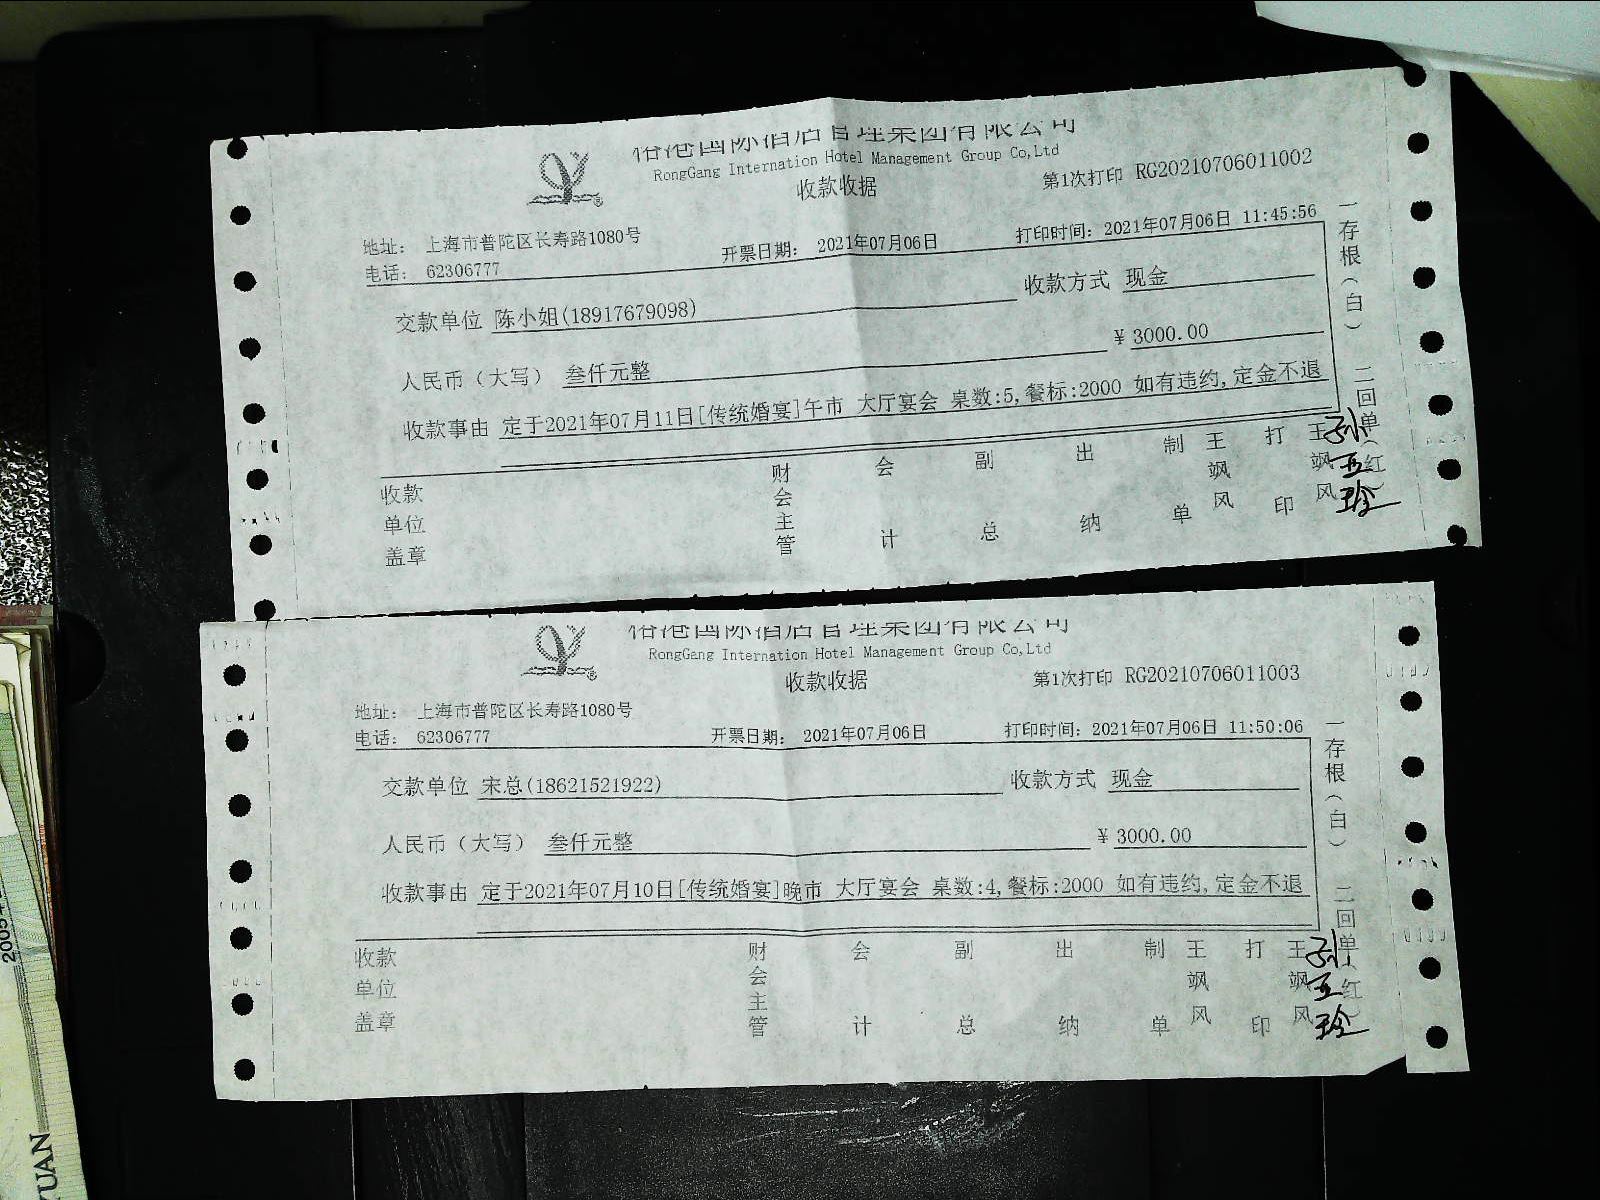 国际酒店管理集团有限公司
RongGang Internation Hotel Management Group Co,Ltd
收款收据
第1次打印 RG20210706011002
地址： 上海市普陀区长寿路1080号
电话： 62306777
开票日期： 2021年07月06日
打印时间：2021年07月06日 11:45:56
交款单位 陈小姐(18917679098)
收款方式 现金
人民币（大写） 叁仟元整
¥ 3000.00
收款事由 定于2021年07月11日[传统婚宴]午市 大厅宴会 桌数:5,餐标:2000 如有违约,定金不退
收款单位盖章
财会主管
会计
副总
出纳
制单
王飒风
打印
王飒风
一存根（白） 二回单（红）
国际酒店管理集团有限公司
RongGang Internation Hotel Management Group Co,Ltd
收款收据
第1次打印 RG20210706011003
地址： 上海市普陀区长寿路1080号
电话： 62306777
开票日期： 2021年07月06日
打印时间：2021年07月06日 11:50:06
交款单位 宋总(18621521922)
收款方式 现金
人民币（大写） 叁仟元整
¥ 3000.00
收款事由 定于2021年07月10日[传统婚宴]晚市 大厅宴会 桌数:4,餐标:2000 如有违约,定金不退
收款单位盖章
财会主管
会计
副总
出纳
制单
王飒风
打印
王飒风
一存根（白） 二回单（红）
2005
YUAN